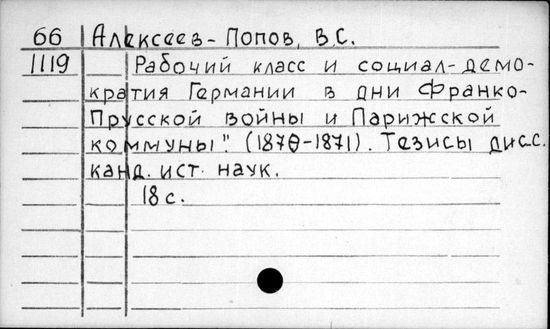 66 Алексеев-Попов, В.С.
1119 Рабочий класс и социал-демо-
кратия Германии в дни Франко-
Прусской войны и Парижской
коммуны" (1870-1871). Тезисы дисс.
канд. ист. наук.
18 с.